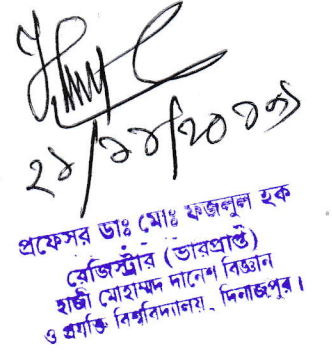 ২১/১১/২০১৭
প্রফেসর ডাঃ মোঃ ফজলুল হক
রেজিস্ট্রার (ভারপ্রাপ্ত)
হাজী মোহাম্মদ দানেশ বিজ্ঞান
ও প্রযুক্তি বিশ্ববিদ্যালয়, দিনাজপুর।